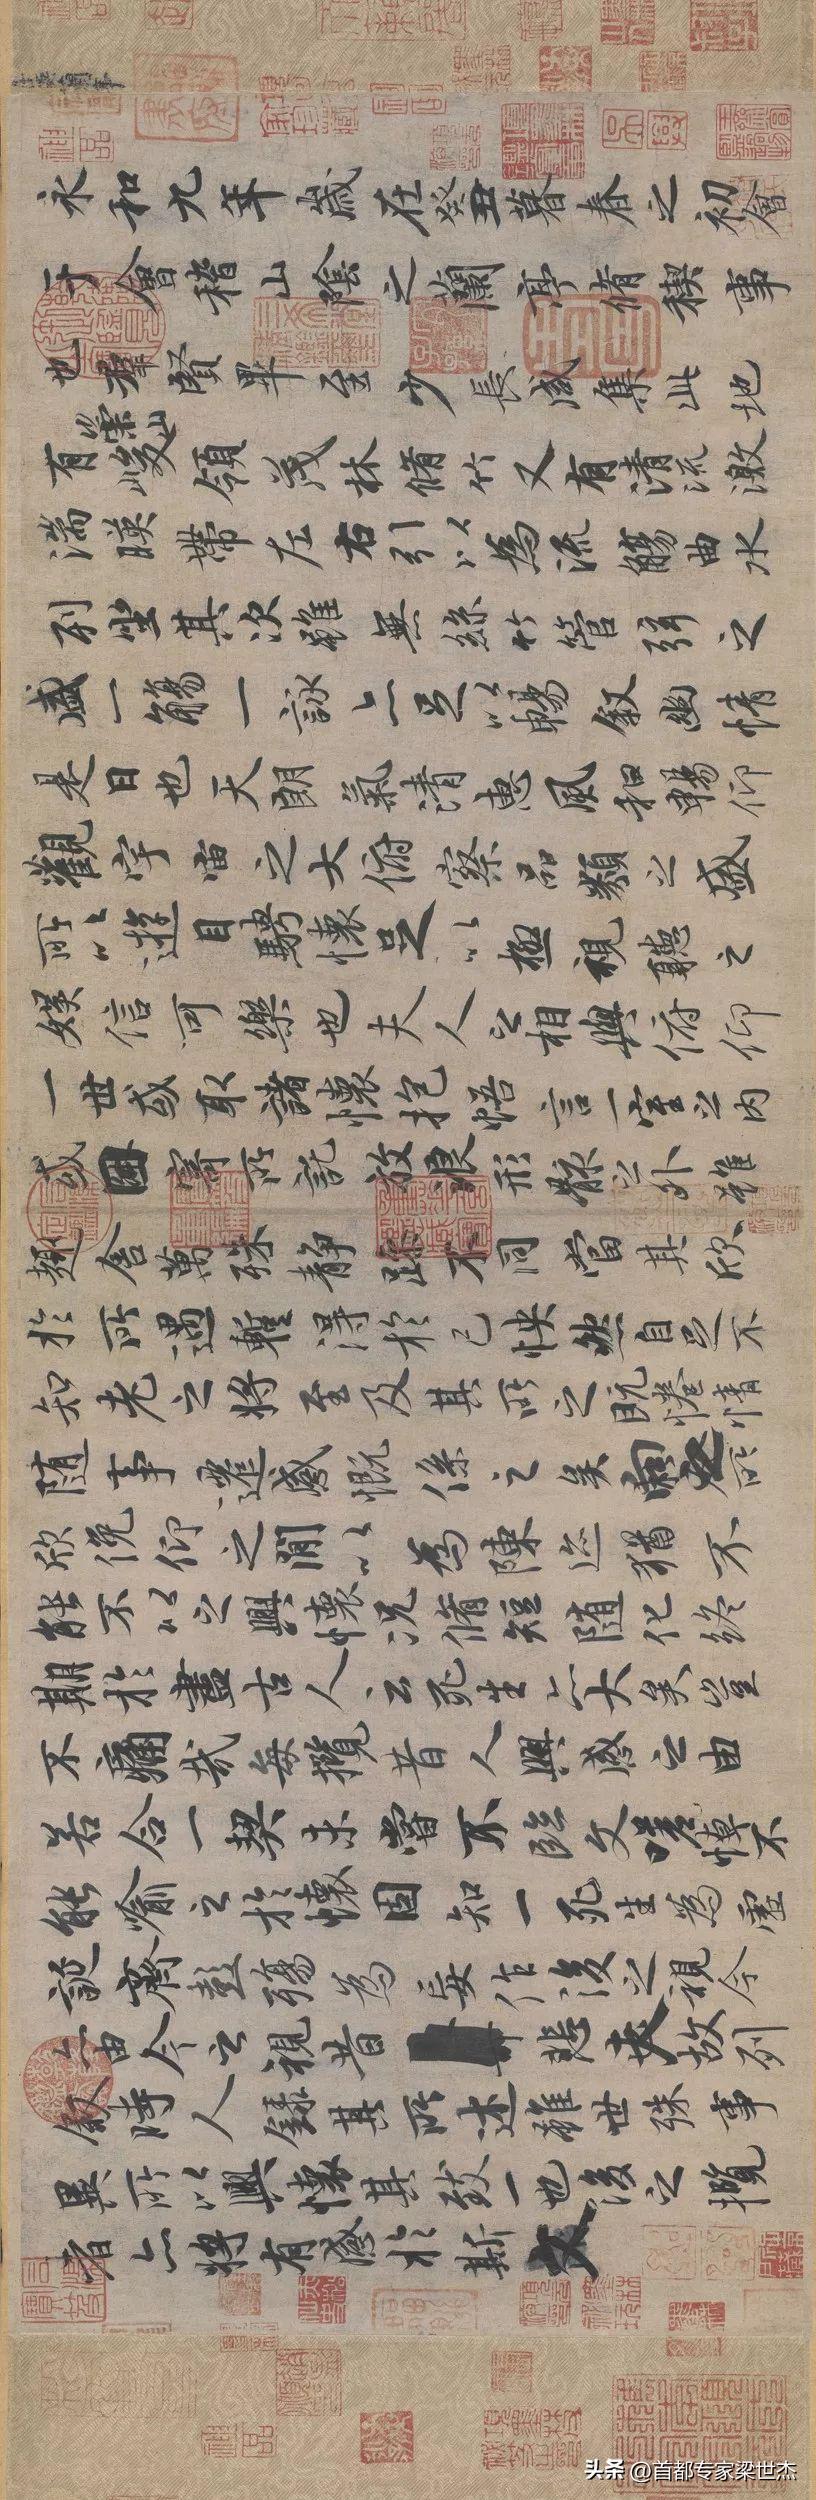 永和九年歲在癸丑暮春之初會
于會稽山陰之蘭亭脩稧事
也羣賢畢至少長咸集此地
有崇山峻領茂林脩竹又有清流激
湍暎帶左右引以為流觴曲水
列坐其次雖無絲竹管弦之
盛一觴一詠亦足以暢敘幽情
是日也天朗氣清惠風和暢仰
觀宇宙之大俯察品類之盛
所以遊目騁懷足以極視聽之
娛信可樂也夫人之相與俯仰
一世或取諸懷抱悟言一室之內
或因寄所託放浪形骸之外雖
趣舍萬殊靜躁不同當其欣
於所遇暫得於己怏然自足不
知老之將至及其所之既惓情
隨事遷感慨係之矣向之所
欣俛仰之閒以為陳迹猶不
能不以之興懷況脩短隨化終
期於盡古人云死生亦大矣豈
不痛哉每攬昔人興感之由
若合一契未嘗不臨文嗟悼不
能喻之於懷固知一死生為虛
誕齊彭殤為妄作後之視今
亦由今之視昔悲夫故列
敘時人錄其所述雖世殊事
異所以興懷其致一也後之攬
者亦將有感於斯文
头条 @首都专家梁世杰